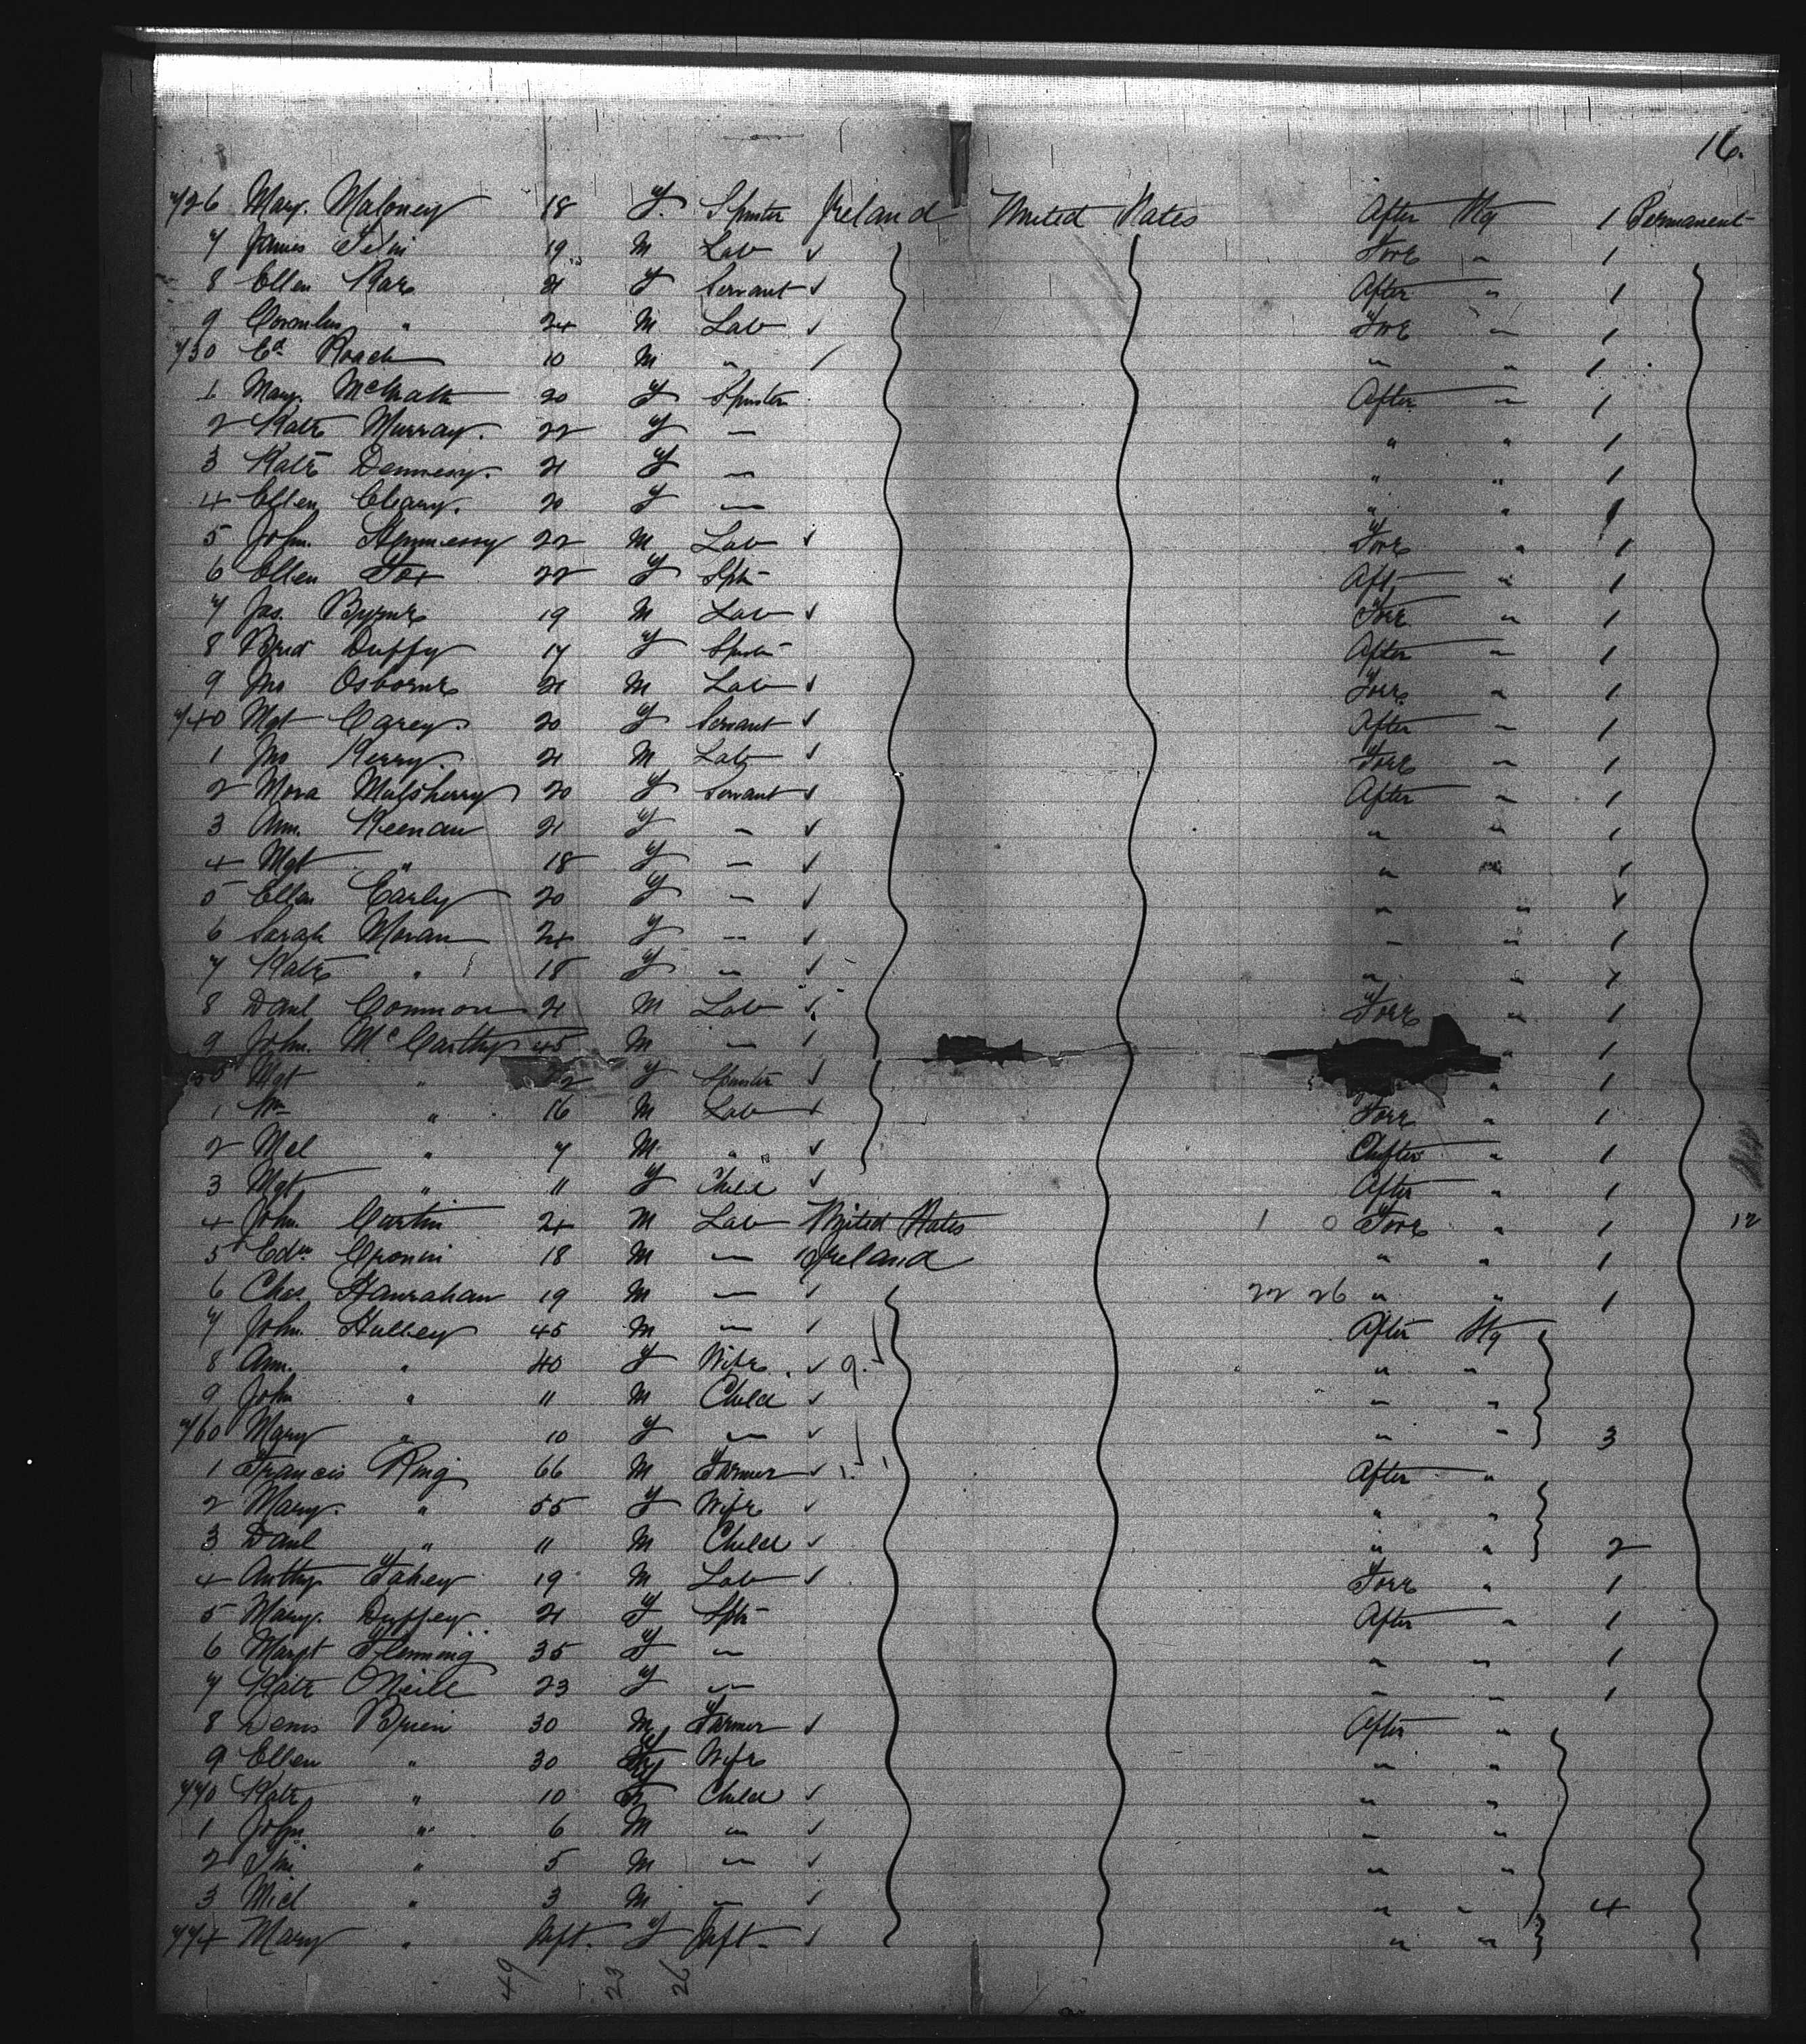 16.
726 Mary. Maloney 18 F. Spinster Ireland United States After Stg 1 Permanent
7 James 19 M Lab ✓ Fore " 1
8 Ellen 21 F Servant ✓ After " 1
9 " 24 M Lab ✓ Fore " 1
730 Ed Roach 10 M " / " " 1
1 Mary. McGrath 20 F Spinster After " 1
2 Kate Murray. 22 F " " " 1
3 Kate Dennesy. 21 F " " " 1
4 Ellen Cleary. 20 F " " " 1
5 John. Hennessy 22 M Lab ✓ Fore " 1
6 Ellen Fox 22 F Sptr Aft " 1
7 Jas. Byrne 19 M Lab ✓ Fore " 1
8 Brid Duffy 17 F Spinstr After " 1
9 Jno Osborne 21 M Lab ✓ Fore " 1
740 Mgt Carey. 20 F Servant ✓ After " 1
1 Jno Kerry. 21 M Lab ✓ Fore " 1
2 Mulsherry 20 F Servant ✓ After " 1
3 Ann. Keenan 21 F " ✓ " " 1
4 Mgt " 18 F " ✓ " " 1
5 Ellen Early 20 F " ✓ " " 1
6 Sarah Moran 24 F " ✓ " " 1
7 Kate " 18 F " ✓ " " 1
8 Danl Connon 21 M Lab ✓ Fore " 1
9 John. McCarthy 45 M " / " 1
50 Mgt " 22 F Spinster ✓ " 1
1 Wm " 16 M Lab ✓ Fore " 1
2 Mcl " 7 M " ✓ After " 1
3 Mgt " 11 F Child ✓ After " 1
4 John. Curtin 24 M Lab United States 1 0 Fore " 1 12
5 Edw. Cronin 18 M " Ireland " " 1
6 Chas. Hanrahan 19 M " / 22 26 " " 1
7 John. 45 M " / After Stg
8 Ann. " 40 F Wife ✓ " "
9 John " 11 M Child ✓ " "
760 Mary " 10 F " ✓ " " 3
1 Francis Ring 66 M Farmer ✓ After "
2 Mary. " 55 F Wife ✓ " "
3 Danl " 11 M Child ✓ " " 2
4 Anthy Fahey 19 M Lab ✓ Fore " 1
5 Mary. Duffey 21 F Sptr After " 1
6 Margt Flemming 35 F " " " 1
7 Kate ONeill 23 F " " " 1
8 Denis Brien 30 M Farmer ✓ After "
9 Ellen " 30 F Wife " "
770 Kate " 10 F Child ✓ " "
1 John " 6 M " ✓ " "
2 " 5 M " ✓ " "
3 Micl " 3 M " ✓ " " 4
774 Mary " Inft. F Inft. ✓ " "
49 23 26